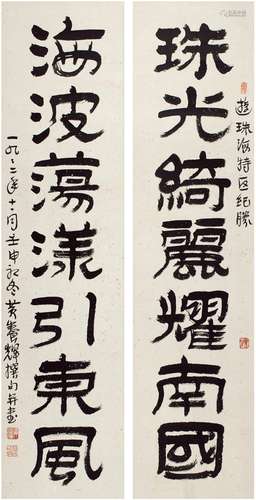 遊珠海特区紀勝
珠光綺麗耀南國
海波蕩漾引東風
一九九二年十一月壬申初冬黃養輝撰句并書